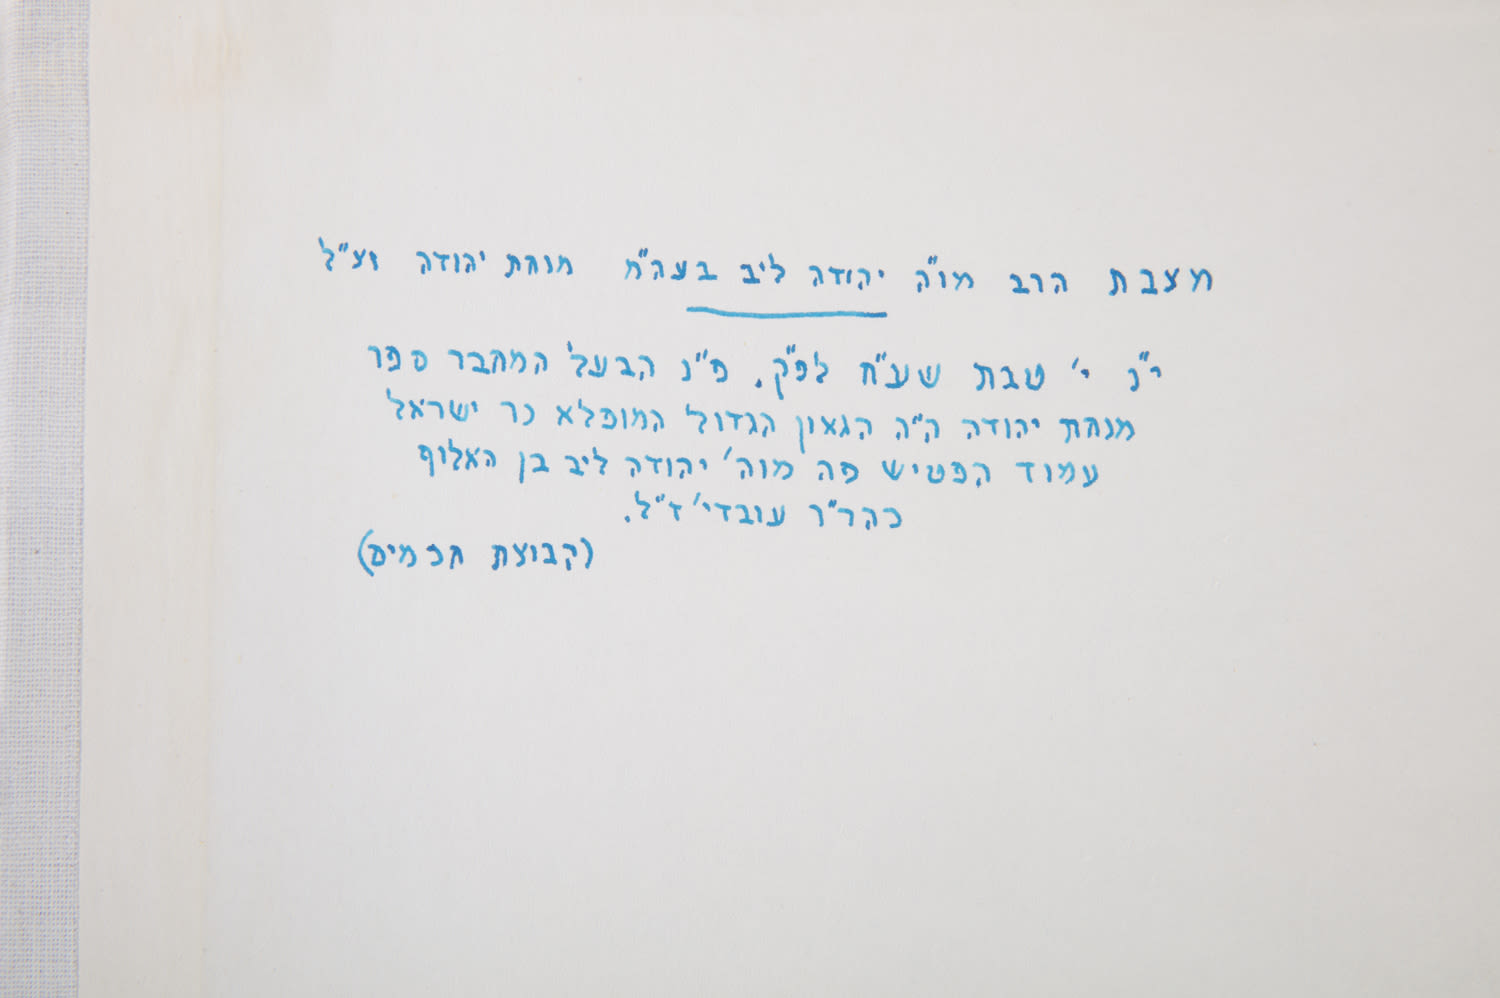 מצבת הרב מו"ה יהודה ליב בעה"מ מנחת יהודה זצ"ל
י"נ י' טבת שע"ח לפ"ק. פ"נ הבעל המחבר ספר
מנחת יהודה ה"ה הגאון הגדול המופלא נר ישראל
עמוד הפטיש פה מוה' יהודה ליב בן האלוף
כהר"ר עובדי' ז"ל.
(קבוצת חכמים)